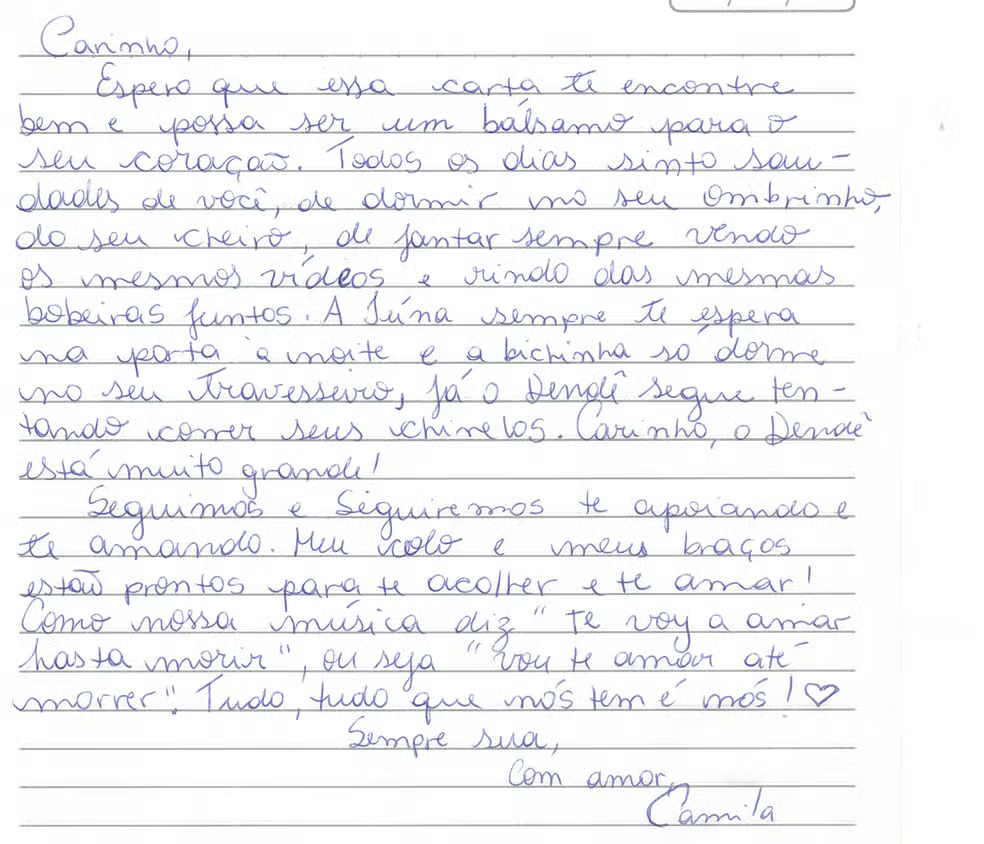 Carinho,
Espero que essa carta te encontre
bem e possa ser um bálsamo para o
seu coração. Todos os dias sinto sau-
dades de você, de dormir no seu ombrinho,
do seu cheiro, de jantar sempre vendo
os mesmos vídeos e rindo das mesmas
bobeiras juntos. A Iúna sempre te espera
na porta à noite e a bichinha só dorme
no seu travesseiro, já o Dendê segue ten-
tando comer seus chinelos. Carinho, o Dendê
está muito grande!
Seguimos e Seguiremos te apoiando e
te amando. Meu colo e meus braços
estão prontos para te acolher e te amar!
Como nossa música diz "te voy a amar
hasta morir", ou seja "vou te amar até
morrer". Tudo, tudo que nós tem é nós! ♡
Sempre sua,
Com amor,
Camila